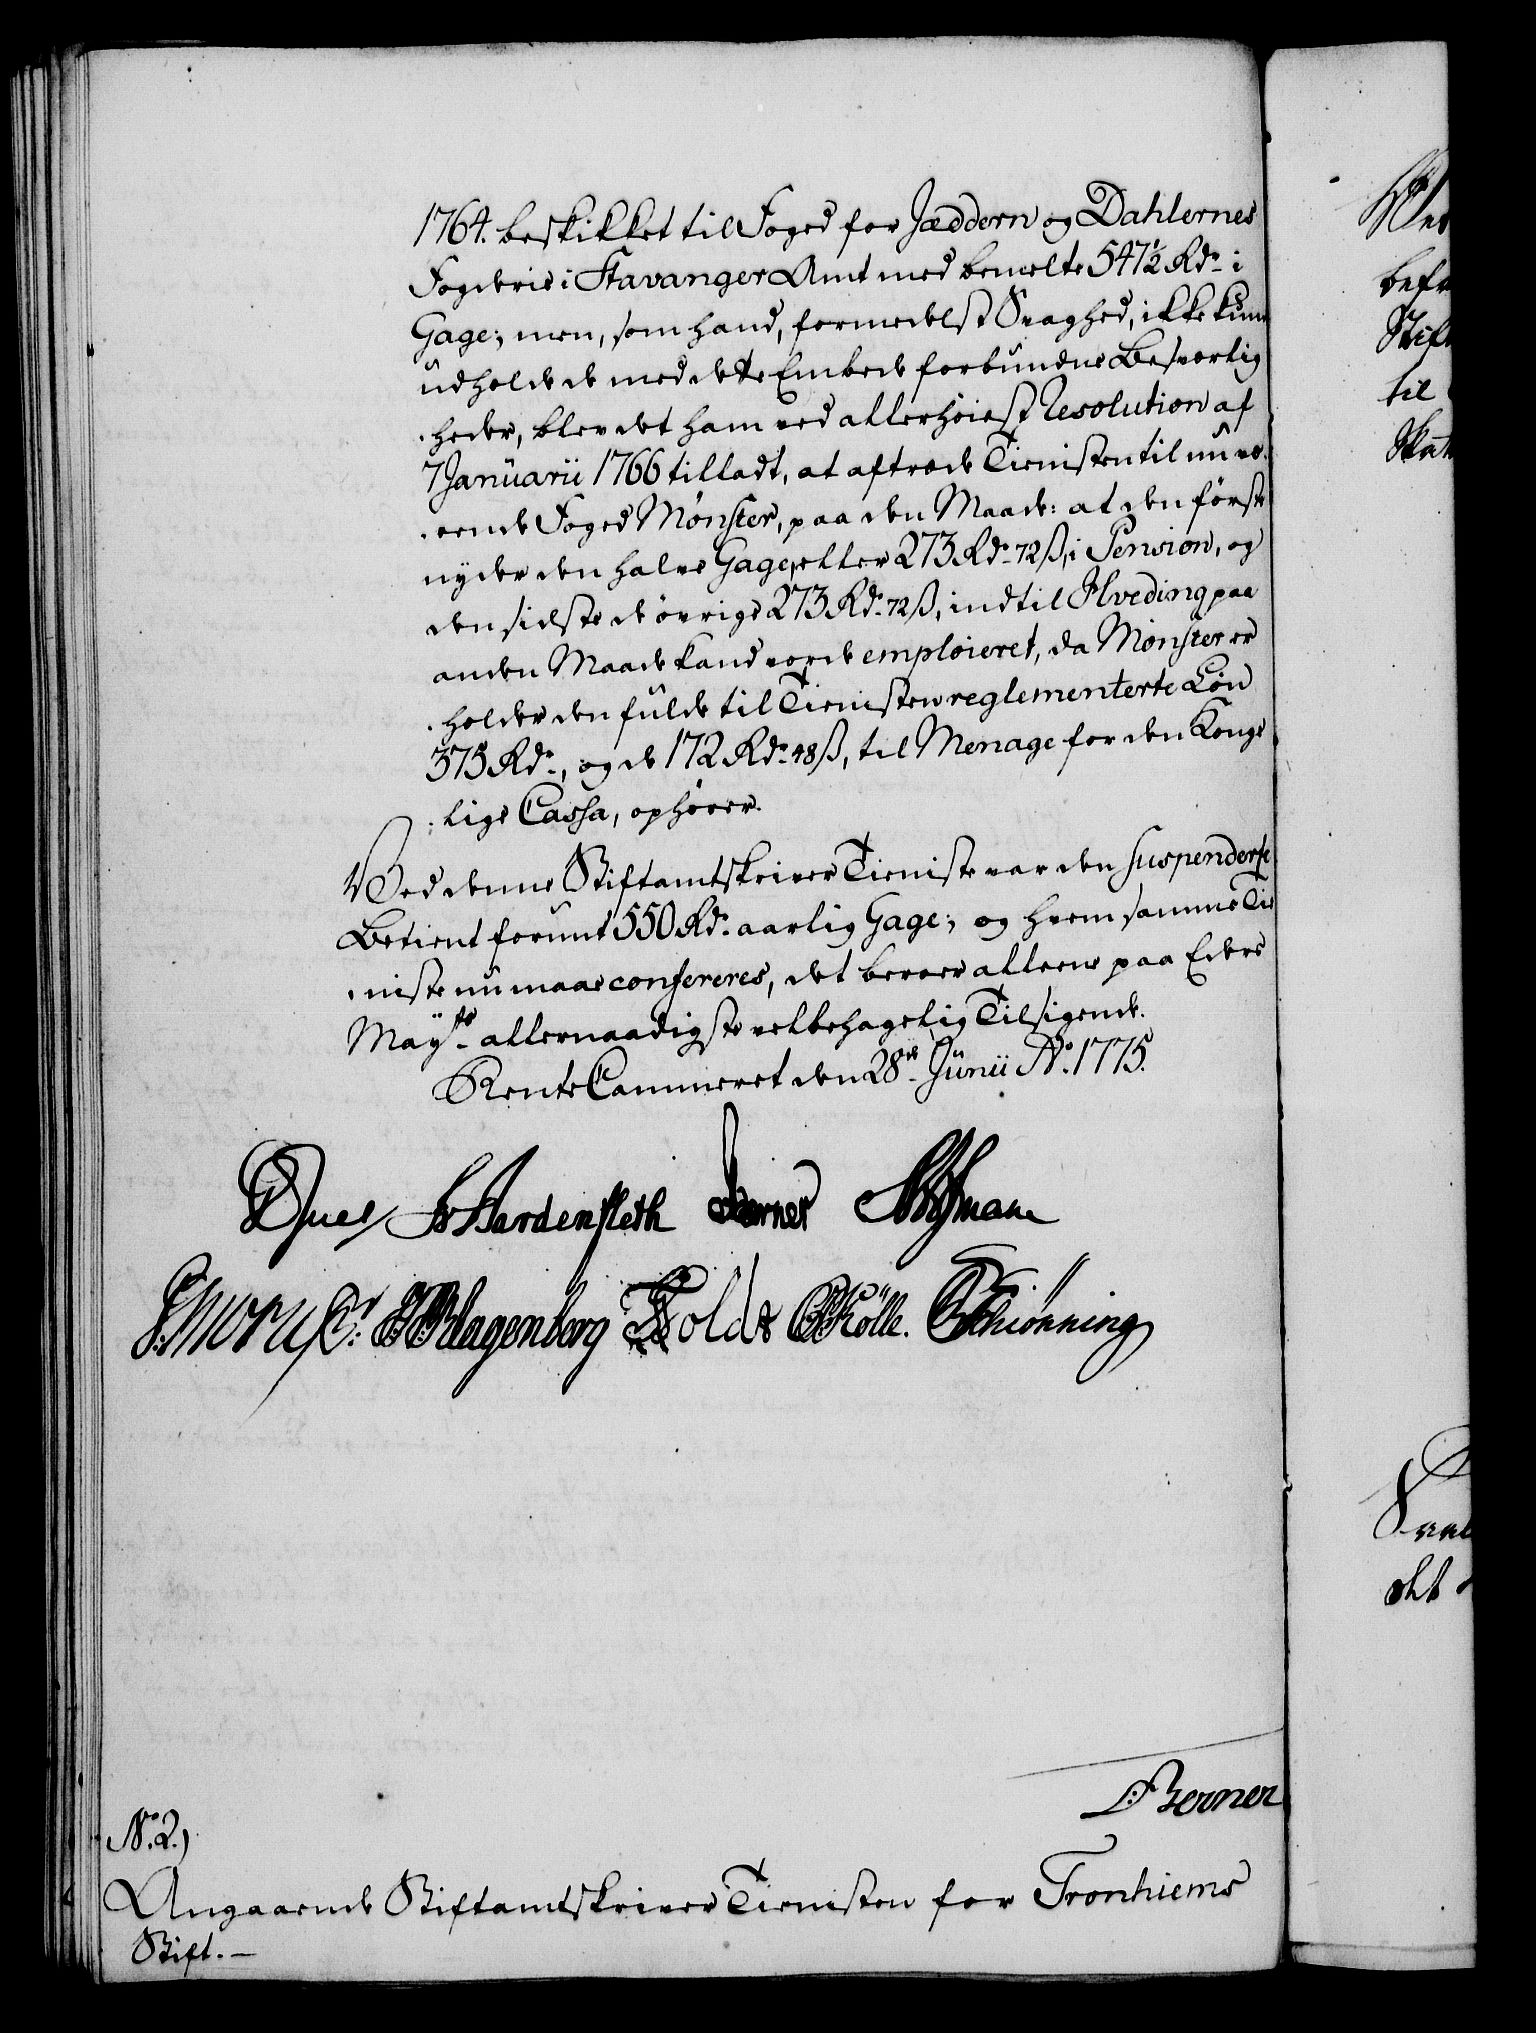 1764. beskikket til Foged for Jæddern og Dahlernes
Fogderie i Stavanger Amt med bemelte 547½ Rdr. i
Gage; men, som hand, formedelst Svaghed, ikke kunde
udholde de med dette Embede forbundne Besværlig
-heder, blev det ham ved allerhøiest Resolution af
7 Januarii 1766 tilladt, at aftræde Tienisten til nu væ-
-rende Foged Mønster, paa den Maade: at den første
nyder den halve Gage, eller 273 Rdr. 72 ß, i Pension, og
den sidste de øvrige 273 Rdr. 72 ß, indtil Hveding paa
anden Maade kand vorde emploieret, da Mønster er
-holder den fulde til Tienisten reglementerte Løn
375 Rdr., og de 172 Rdr. 48 ß, til Menage for den Konge
-lige Cassa, ophører.
Ved denne Stiftamtskriver Tieniste var den suspenderte
Betient forunt 550 Rdr. aarlig Gage; og hvem samme Tie
-niste nu maae confereres, det beroer alleene paa Eders
Mayts allernaadigste velbehagelig Tilsigende.
Rente Cammeret den 28de Junii Ao. 1775.
Juel Hardenfleth Berner
Klagenberg Holdt Kölle. Schiönning
Berner
No. 2.)
Angaaende Stiftamtskriver Tienisten for Tronhiems
Stift. –